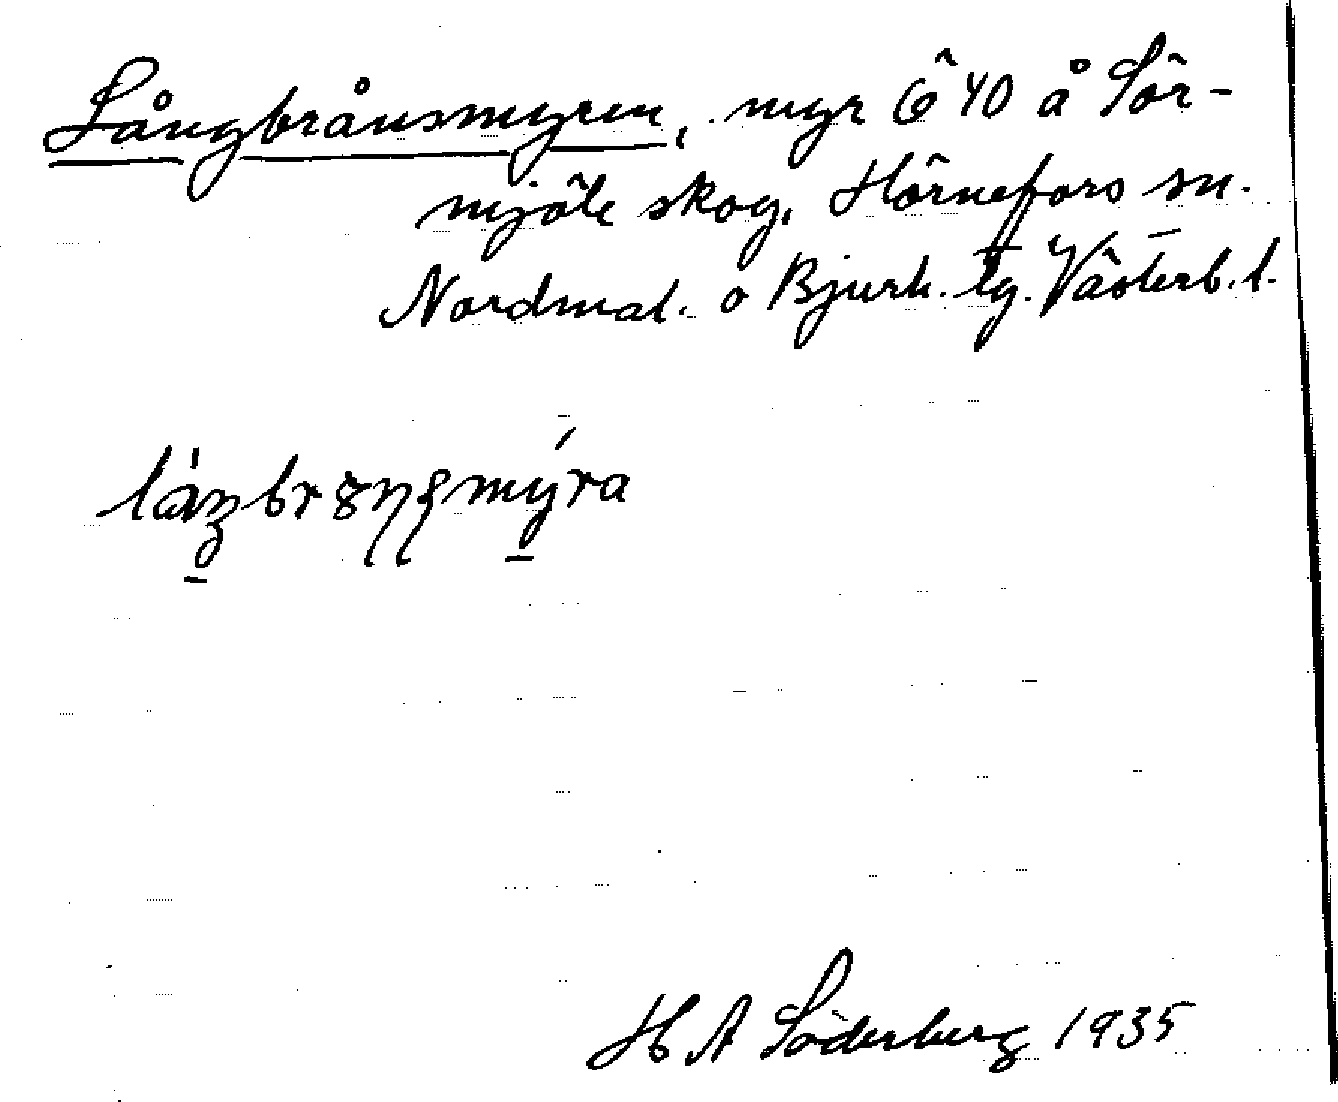 Långbrånsmyren, myr Ö 40 å Sör-
mjöle skog, Hörnefors sn.
Nordmal. o Bjurh. tg. Västerb. l.
H A Söderberg 1935